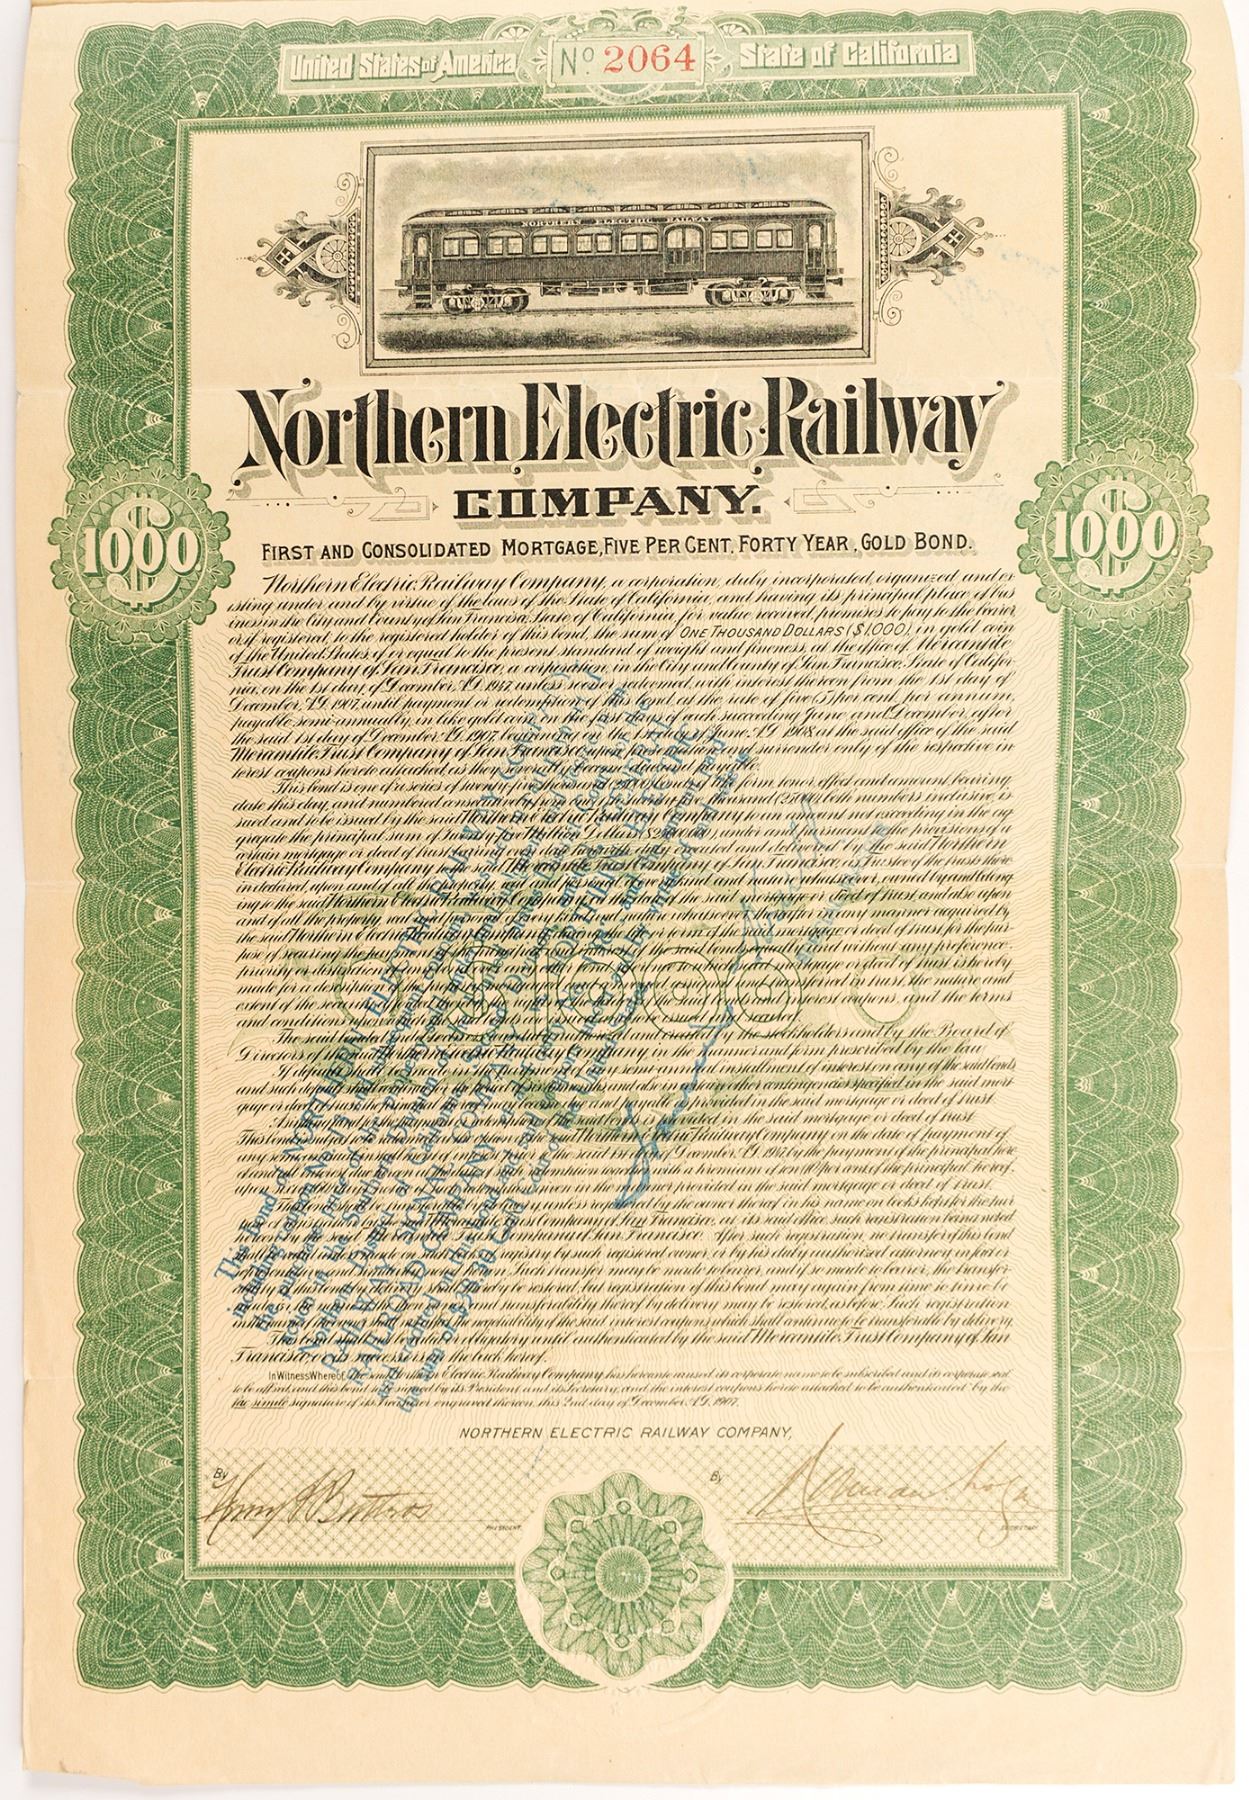 United States of America
Nº 2064
State of California
NORTHERN ELECTRIC RAILWAY
Northern Electric Railway
COMPANY.
1000
1000
FIRST AND CONSOLIDATED MORTGAGE, FIVE PER CENT. FORTY YEAR, GOLD BOND.
Northern Electric Railway Company, a corporation, duly incorporated, organized, and ex
isting under and by virtue of the laws of the State of California, and having its principal place of bus
iness in the City and County of San Francisco, State of California, for value received, promises to pay to the bearer,
or if registered, to the registered holder of this bond, the sum of ONE THOUSAND DOLLARS ($1,000), in gold coin
of the United States, of or equal to the present standard of weight and fineness, at the office of Mercantile
Trust Company of San Francisco, a corporation, in the City and County of San Francisco, State of Califor
nia, on the 1st day of December, A.D. 1947, unless sooner redeemed, with interest thereon from the 1st day of
December, A.D. 1907, until payment or redemption of this bond, at the rate of five (5) per cent. per annum,
payable semi-annually, in like gold coin, on the first days of each succeeding June and December, after
the said 1st day of December, A.D. 1907, beginning on the 1st day of June, A.D. 1908, at the said office of the said
Mercantile Trust Company of San Francisco, upon presentation and surrender only of the respective in
terest coupons hereto attached, as they severally become due and payable.
This bond is one of a series of twenty-five thousand (25,000) bonds of like form, tenor, effect and amount, bearing
date this day, and numbered consecutively from one (1) to twenty-five thousand (25,000), both numbers inclusive, is
sued and to be issued by the said Northern Electric Railway Company to an amount not exceeding in the ag
gregate the principal sum of Twenty-five Million Dollars ($25,000,000), under and pursuant to the provisions of a
certain mortgage or deed of trust bearing even date herewith, duly executed and delivered by the said Northern
Electric Railway Company to the said Mercantile Trust Company of San Francisco, as Trustee of the trusts there
in declared, upon and of all the property, real and personal, of every kind and nature whatsoever, owned by and belong
ing to the said Northern Electric Railway Company at the date of the said mortgage or deed of trust and also upon
and of all the property, real and personal, of every kind and nature whatsoever, thereafter in any manner acquired by
the said Northern Electric Railway Company during the life or term of the said mortgage or deed of trust, for the pur
pose of securing the payment of the principal and interest of the said bonds equally and without any preference,
priority or distinction of any bond over any other bond, reference to which said mortgage or deed of trust is hereby
made for a description of the property mortgaged, assigned and transferred in trust, the nature and
extent of the security, the rights of the holders of the said bonds and interest coupons, and the terms
and conditions upon which the said bonds are issued and to be issued and secured.
The said bonded indebtedness was duly authorized and created by the stockholders and by the Board of
Directors of the said Northern Electric Railway Company in the manner and form prescribed by the law.
If default shall be made in the payment of any semi-annual installment of interest on any of the said bonds
and such default shall continue for the period of six months, and also in certain other contingencies specified in the said mort
gage or deed of trust, the principal hereof may become due and payable as provided in the said mortgage or deed of trust.
A sinking fund for the payment and redemption of the said bonds is provided in the said mortgage or deed of trust.
This bond is subject to redemption at the option of the said Northern Electric Railway Company on the date of payment of
any semi-annual installment of interest prior to the said 1st day of December, A.D. 1947, by the payment of the principal here
of and all interest due hereon at the date of such redemption together with a premium of ten (10) per cent. of the principal hereof,
upon notice of such redemption given in the manner provided in the said mortgage or deed of trust.
This bond shall be transferable by delivery unless registered by the owner thereof in his name on books kept for the pur
pose of registration by the said Mercantile Trust Company of San Francisco, at its said office, such registration being noted
hereon by the said Mercantile Trust Company of San Francisco. After such registration, no transfer of this bond
shall be valid unless made on such books of registry by such registered owner, or by his duly authorized attorney in fact or
representative, and similarly noted hereon. Such transfer may be made to bearer, and if so made to bearer, the transfer
ability of this bond by delivery shall thereby be restored, but registration of this bond may again from time to time be
made and transferability thereof by delivery may be restored, as before. Such registration
in the name of the owner shall not affect the negotiability of the said interest coupons, which shall continue to be transferable by delivery.
This bond shall not be valid or obligatory until authenticated by the said Mercantile Trust Company of San
Francisco, or its successor, on the back hereof.
In Witness Whereof, The said Northern Electric Railway Company has hereunto caused its corporate name to be subscribed and its corporate seal
to be affixed, and this bond to be signed by its President and its Secretary, and the interest coupons hereto attached to be authenticated by the
fac simile signature of its Treasurer engraved thereon, this 2nd day of December, A.D. 1907.
NORTHERN ELECTRIC RAILWAY COMPANY,
By
PRESIDENT.
By
SECRETARY.